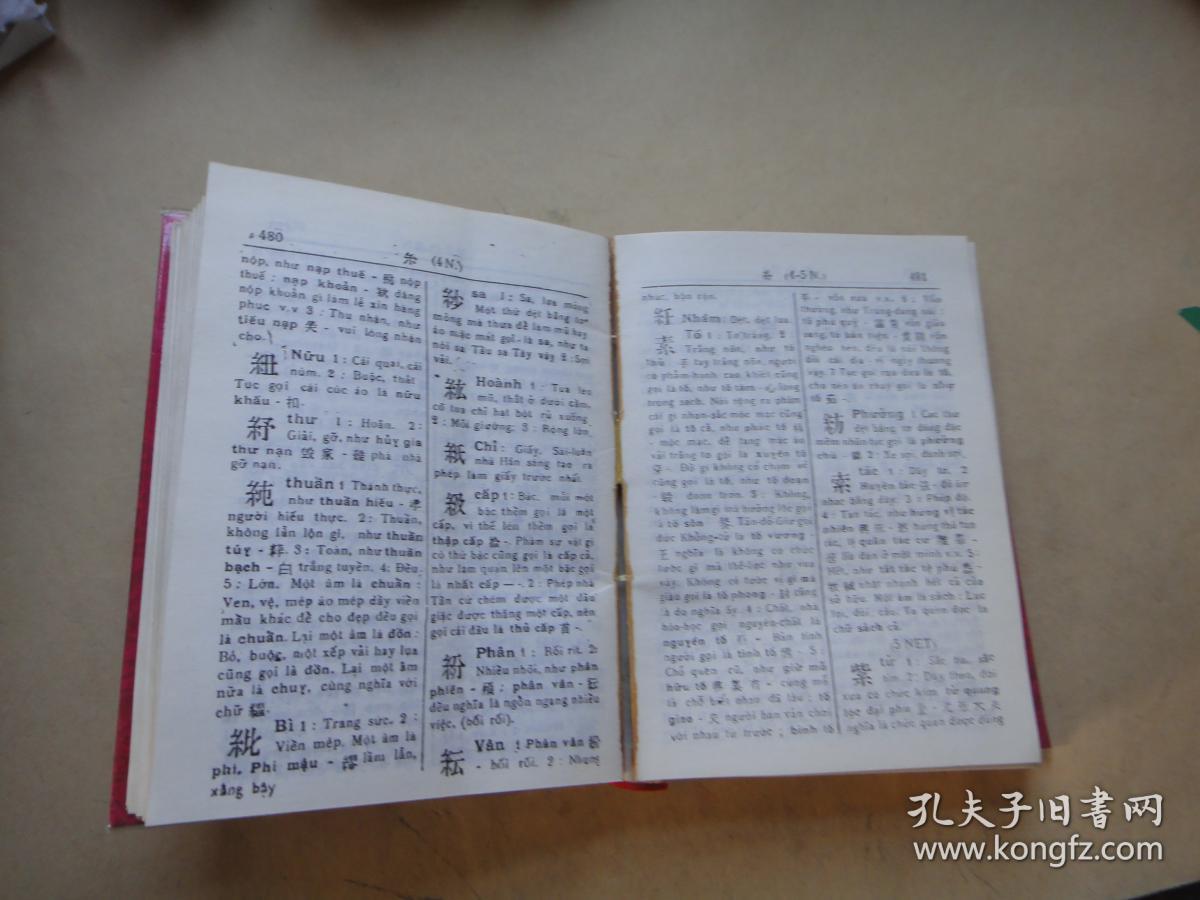 480
糸 (4 N.)
nộp, như nạp thuế - nộp
thuế : nạp khoản - dâng
nộp khoản gì làm lễ xin hàng
phục v.v 3 : Thu nhận, như
tiếu nạp 笑 - vui lòng nhận
cho.
紐 Nữu 1 : Cái quạt, cái
núm. 2 : Buộc, thắt
Tục gọi cái cúc áo là nữu
khấu - 扣.
紓 thư 1 : Hoãn. 2 :
Giải, gỡ, như hủy gia
thư nạn 毀家 - 難 phá nhà
gỡ nạn.
純 thuần 1 Thành thực,
như thuần hiếu - 孝
người hiếu thực. 2 : Thuần,
không lẫn lộn gì, như thuần
túy - 粹. 3 : Toàn, như thuần
bạch - 白 trắng tuyền. 4: Đều.
5 : Lớn. Một âm là chuẩn :
Ven, vệ, mép áo mép dầy viền
mầu khác để cho đẹp đều gọi
là chuẩn. Lại một âm là đồn :
Bó, buộc, một xếp vải hay lụa
cũng gọi là đồn. Lại một âm
nữa là chuy, cùng nghĩa với
chữ 緇.
紕 Bì 1 : Trang sức. 2 :
Viền mép. Một âm là
phi. Phi mậu - 謬 lầm lẫn,
xằng bậy
紗 sa 1 : Sa, lụa mỏng
Một thứ dệt bằng tơ
mỏng mà thưa để làm mũ hay
áo mặc mát gọi là sa, như ta
nói sa Tầu sa Tây vậy 2 : Sợi
vải.
紘 Hoành 1 : Tua leo
mũ, thắt ở dưới cằm,
có tua chỉ hạt bột rủ xuống.
2 : Mối giường. 3 : Rộng lớn.
紙 Chỉ : Giấy. Sái-luân
nhà Hán sáng tạo ra
phép làm giấy trước nhất.
級 cấp 1 : Bậc. mỗi một
bậc thềm gọi là một
cấp, vì thế lên thềm gọi là
thập cấp 拾 -. Phàm sự vật gì
có thứ bậc cũng gọi là cấp cả,
như làm quan lên một bậc gọi
là nhất cấp 一 -. 2 : Phép nhà
Tần cứ chém được một đầu
giặc được thăng một cấp, nên
gọi cái đầu là thủ cấp 首 -.
紛 Phân 1 : Rối rít. 2:
Nhiều nhõi, như phân
phiền - 煩 ; phân vân - 紜
đều nghĩa là ngổn ngang nhiều
việc, (bối rối).
紜 Vân ! Phân vân 紛
- bối rối. 2 : Nhưng
糸 (4-5 N.)
481
紝 Nhâm: Dệt, dệt lụa
素 Tố 1 : Tơ trắng. 2
Trắng nõn, như tố
thủ - 手 tay trắng nõn, người
có phẩm-hạnh cao khiết cũng
gọi là tố, như tố tâm - 心 lòng
trong sạch. Nói rộng ra phàm
cái gì nhạn-sắc mộc mạc cũng
gọi là tố cả, như phác tố 樸
- mộc mạc, để tang mặc áo
vải trắng trơn gọi là xuyên tố
穿 -. Đồ gì không có chạm vẽ
cũng gọi là tố, như tố đoạn
- 緞 đoạn trơn. 3 : Không,
không làm gì mà hưởng lộc gọi
là tố sôn - 飧. Tân-đồ-Giư gọi
đức Khổng-tử là tố vương -
王 nghĩa là không có chức
gì mà thế-lực như vua
vậy. Không có tước vị gì mà
giàu gọi là tố phong - 封 cũng
là do nghĩa ấy. 4 : Chất, nhà
hóa-học gọi nguyên-chất là
nguyên tố 元 -. Bản tính
người gọi là tình tố 情 -. 5 :
là chỗ biết nhau đã lâu : tố
giao - 交 người bạn vẫn chơi
với nhau từ trước ; bình tố
平 - vốn xưa v.v. 6 : Vốn
thường, như Trung-dung nói :
tố phú quý - 富貴 vốn giàu
sang, tố bần tiện - 貧賤 vốn
nghèo hèn. đều là cái không
đổi cái địa vị ngày thường
vậy. 7 Tục gọi rau dưa là tố,
cho nên ăn chay gọi là nhự
tố 茹 -.
紡 Phưởng 1 Các thứ
dệt bằng tơ dùng đặc
mềm nhẵn tục gọi là phưởng
2: Xe sợi, đánh sợi.
索 tác 1 : Dây tơ. 2
nhạc bằng dây. 3 : Phép độ.
chữ sách cả.
(5 NÉT)
紫 tử 1 : Sắc tía, sắc
tím. 2 : Dây thao, đời
xưa có chức kim tử quang
lộc đại phu 金 - 光祿大夫
nghĩa là chức quan được dùng
孔夫子旧书网
www.kongfz.com